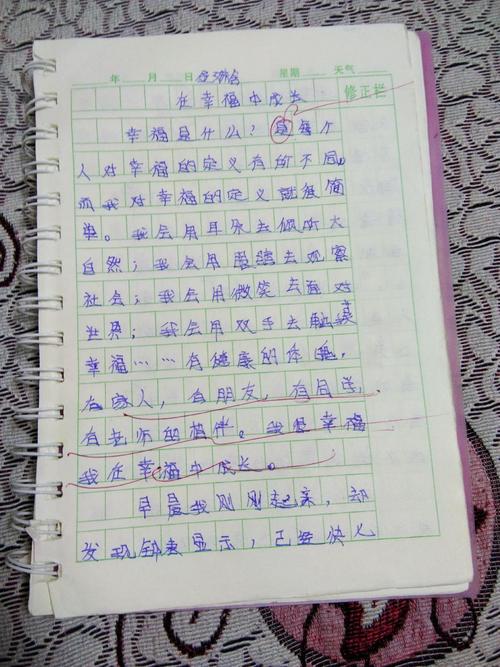 年 月 日 星期 天气
在幸福中成长
修正栏
幸福是什么？每个
人对幸福的定义有所不同。
而我对幸福的定义就很简
单。我会用耳朵去倾听大
自然；我会用眼睛去观察
社会；我会用微笑去面对
世界；我会用双手去触摸
幸福……有健康的体魄，
有家人，有朋友，有同学，
有老师的陪伴。我爱幸福
我在幸福中成长。
早晨我刚刚起来，却
发现钟表显示，已经快七